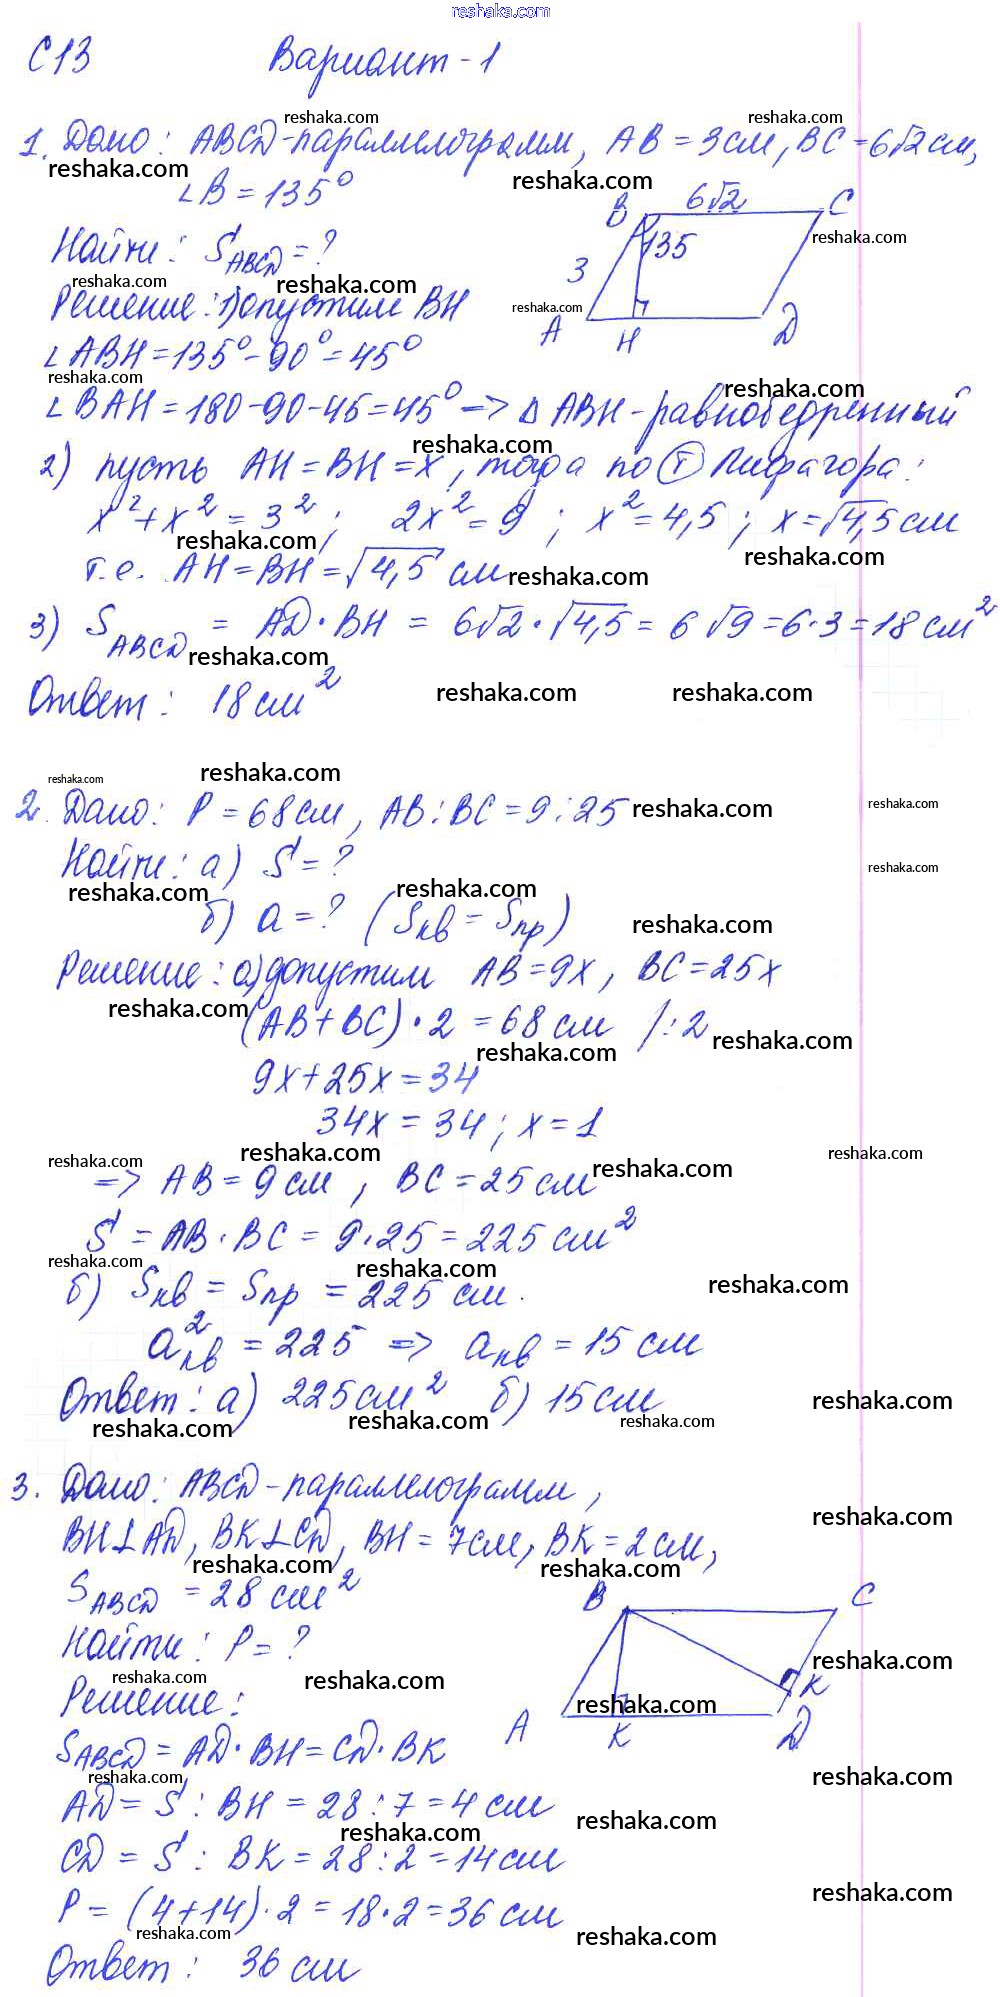 reshaka.com
С13 Вариант-1
1. Дано: ABCD-параллелограмм, AB = 3 см, BC = 6√2 см,
∠B = 135°
Найти: S_ABCD = ?
Решение: 1) опустим BH
∠ABH = 135° - 90° = 45°
∠BAH = 180 - 90 - 45 = 45° => Δ ABH - равнобедренный
B 6√2 C
135
3
A H D
2) пусть AH = BH = x, тогда по Т Пифагора:
x² + x² = 3²; 2x² = 9; x² = 4,5; x = √4,5 см
т.е. AH = BH = √4,5 см
3) S_ABCD = AD · BH = 6√2 · √4,5 = 6√9 = 6·3 = 18 см²
Ответ: 18 см²
2. Дано: P = 68 см, AB : BC = 9 : 25
Найти: а) S = ?
б) a = ? (Sкв = Sпр)
Решение: а) допустим AB = 9x, BC = 25x
(AB + BC) · 2 = 68 см /: 2
9x + 25x = 34
34x = 34; x = 1
=> AB = 9 см, BC = 25 см
S = AB · BC = 9·25 = 225 см²
б) Sкв = Sпр = 225 см.
a²кв = 225 => aкв = 15 см
Ответ: а) 225 см² б) 15 см
3. Дано: ABCD - параллелограмм,
BH⊥AD, BK⊥CD, BH = 7 см, BK = 2 см,
S_ABCD = 28 см²
Найти: P = ?
Решение:
B C
K
A K D
S_ABCD = AD · BH = CD · BK
AD = S : BH = 28 : 7 = 4 см
CD = S : BK = 28 : 2 = 14 см
P = (4+14) · 2 = 18·2 = 36 см
Ответ: 36 см